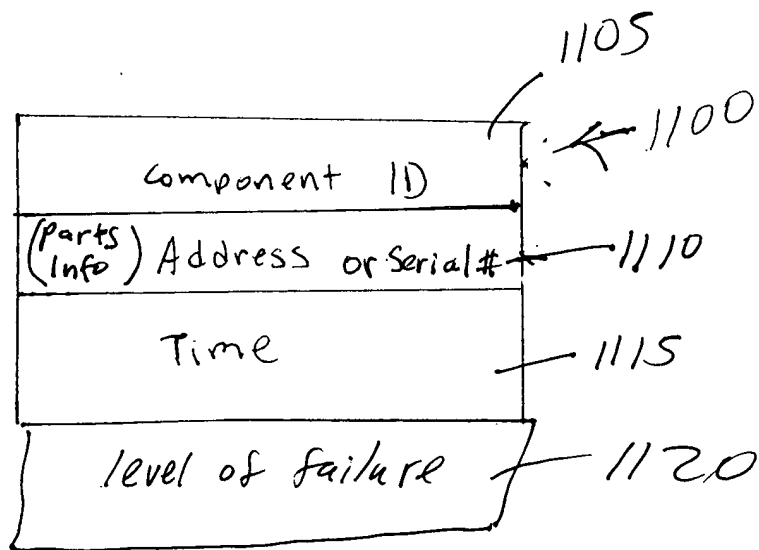 1105
1100
component ID
(Parts Info) Address or Serial# 1110
Time 1115
level of failure 1120